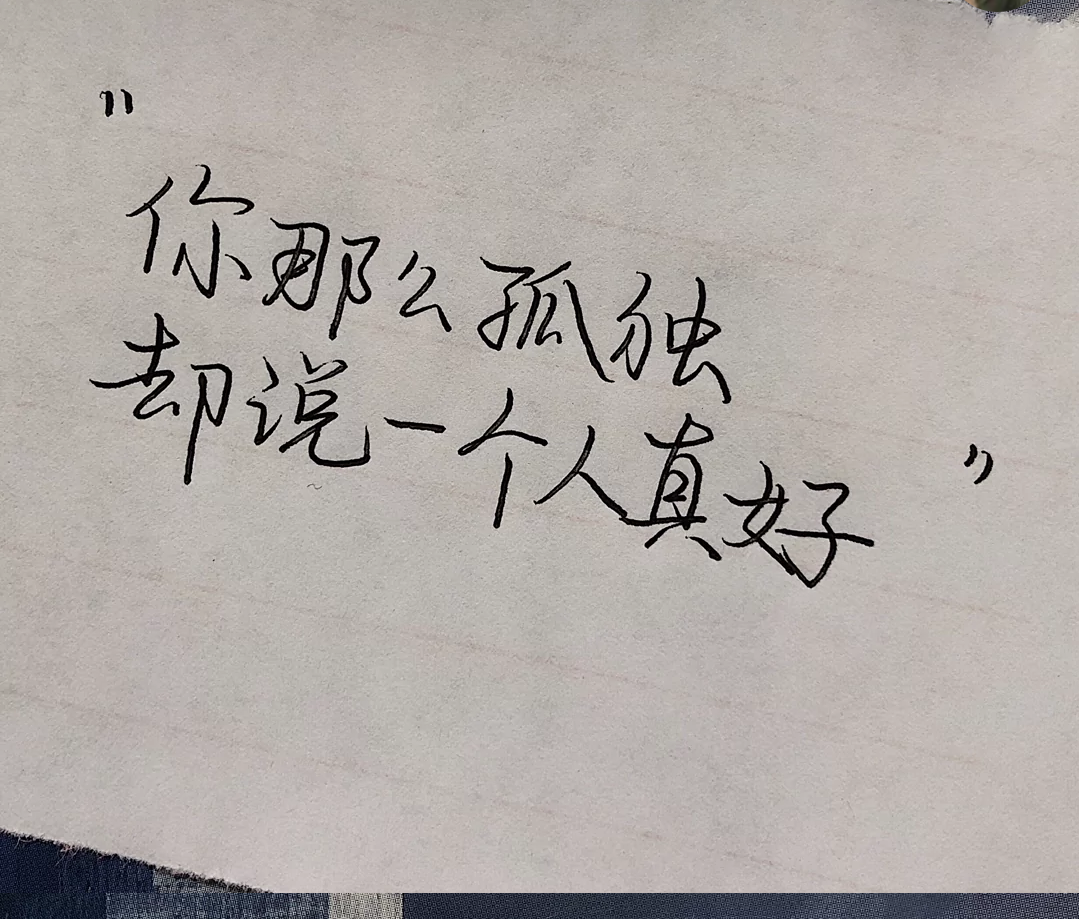 "
你那么孤独
却说一个人真好
"